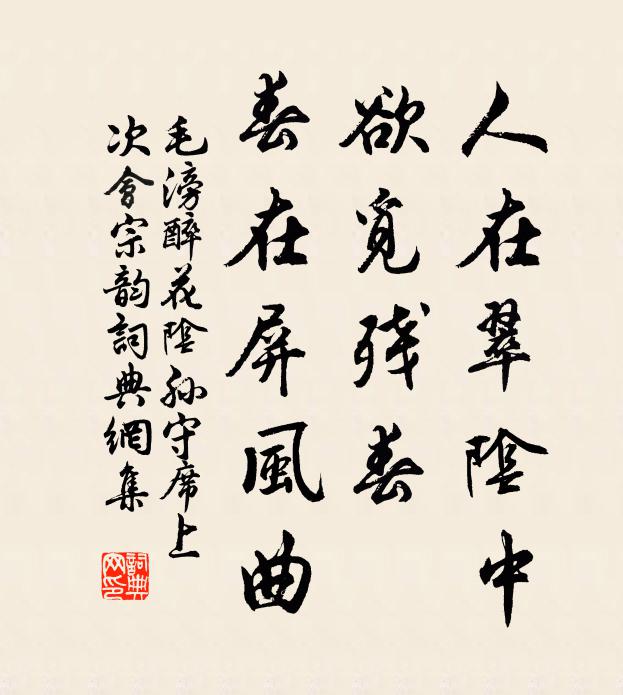 人在翠陰中
欲覓残春
春在屏風曲
毛滂醉花陰孙守席上
次會宗韵詞典網集
詞典
网印